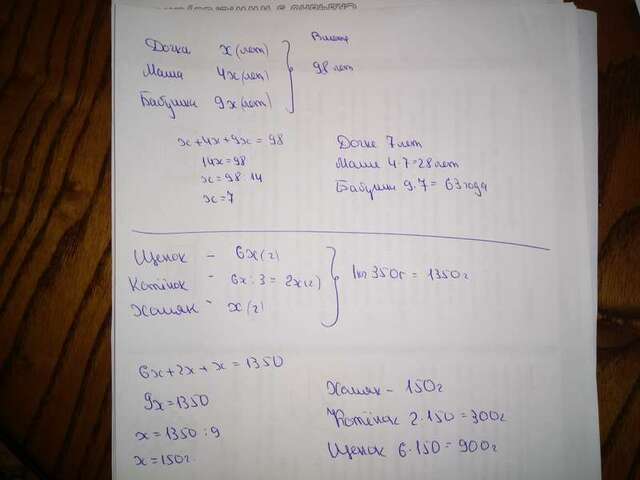 Дочка x (лет)
Маша 4x (лет)
Бабушка 9x (лет)
Вместе
98 лет
x + 4x + 9x = 98
14x = 98
x = 98 : 14
x = 7
Дочке 7 лет
Маше 4·7=28 лет
Бабушке 9·7= 63 года
Щенок - 6x (г)
Котёнок - 6x : 3 = 2x (г)
Хомяк - x (г)
1кг 350г = 1350 г
6x + 2x + x = 1350
9x = 1350
x = 1350 : 9
x = 150г.
Хомяк - 150г
Котёнок 2·150 = 300г
Щенок 6·150 = 900г